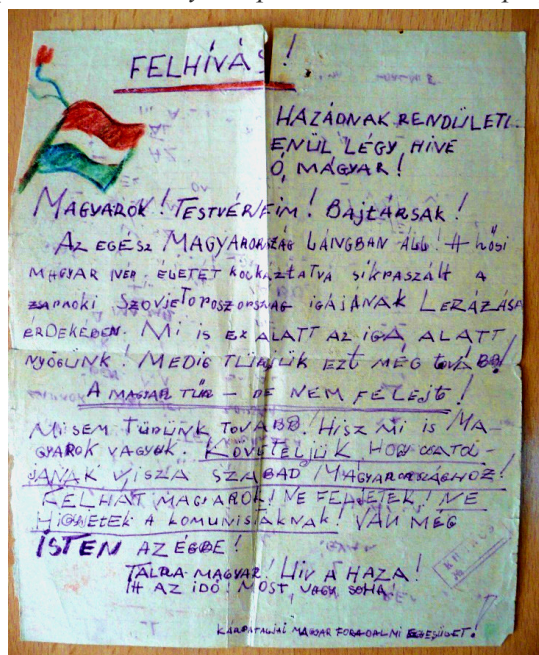 FELHÍVÁS!
HAZÁDNAK RENDÜLETL-
ENÜL LÉGY HIVE
Ó, MAGYAR!
MAGYAROK! TESTVÉREIM! BAJTÁRSAK!
AZ EGÉSZ MAGYARORSZÁG LÁNGBAN ÁLL! A HŐSI
MAGYAR NÉP ÉLETÉT KOCKÁZTATVA SIKRASZÁLT A
ZSARNOKI SZOVJETOROSZORSZÁG IGÁJÁNAK LERÁZÁSA
ÉRDEKÉBEN. MI IS EZ ALATT AZ IGA ALATT
NYÖGÜNK! MEDIG TŰRJÜK EZT MÉG TOVÁBB!
A MAGYAR TŰR – DE NEM FELEJT!
MI SEM TŰRÜNK TOVÁBB! HISZ MI IS MA-
GYAROK VAGYUK. KÖVETELJÜK HOGY CSATOL-
JANAK VISZA SZABAD MAGYARORSZÁGHOZ!
FELHÁT MAGYAROK! NE FELJETEK! NE
HIGYJETEK A KOMUNISTÁKNAK! VAN MÉG
ISTEN AZ ÉGBE!
TALRA MAGYAR! HIV A HAZA!
ITT AZ IDŐ! MOST, VAGY SOHA!
KÁRPÁTALJAI MAGYAR FORADALMI EGYESÜLET!